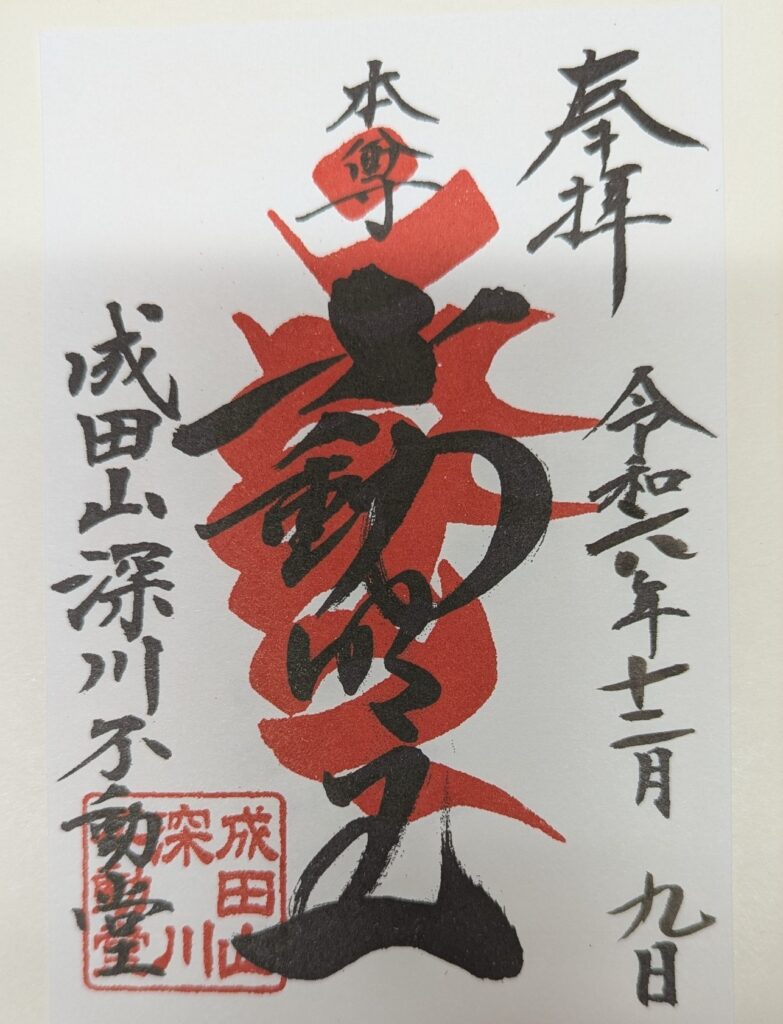 奉拝
令和六年十二月 九日
本尊
不動明王
成田山深川不動堂
成田山
深川
不動堂